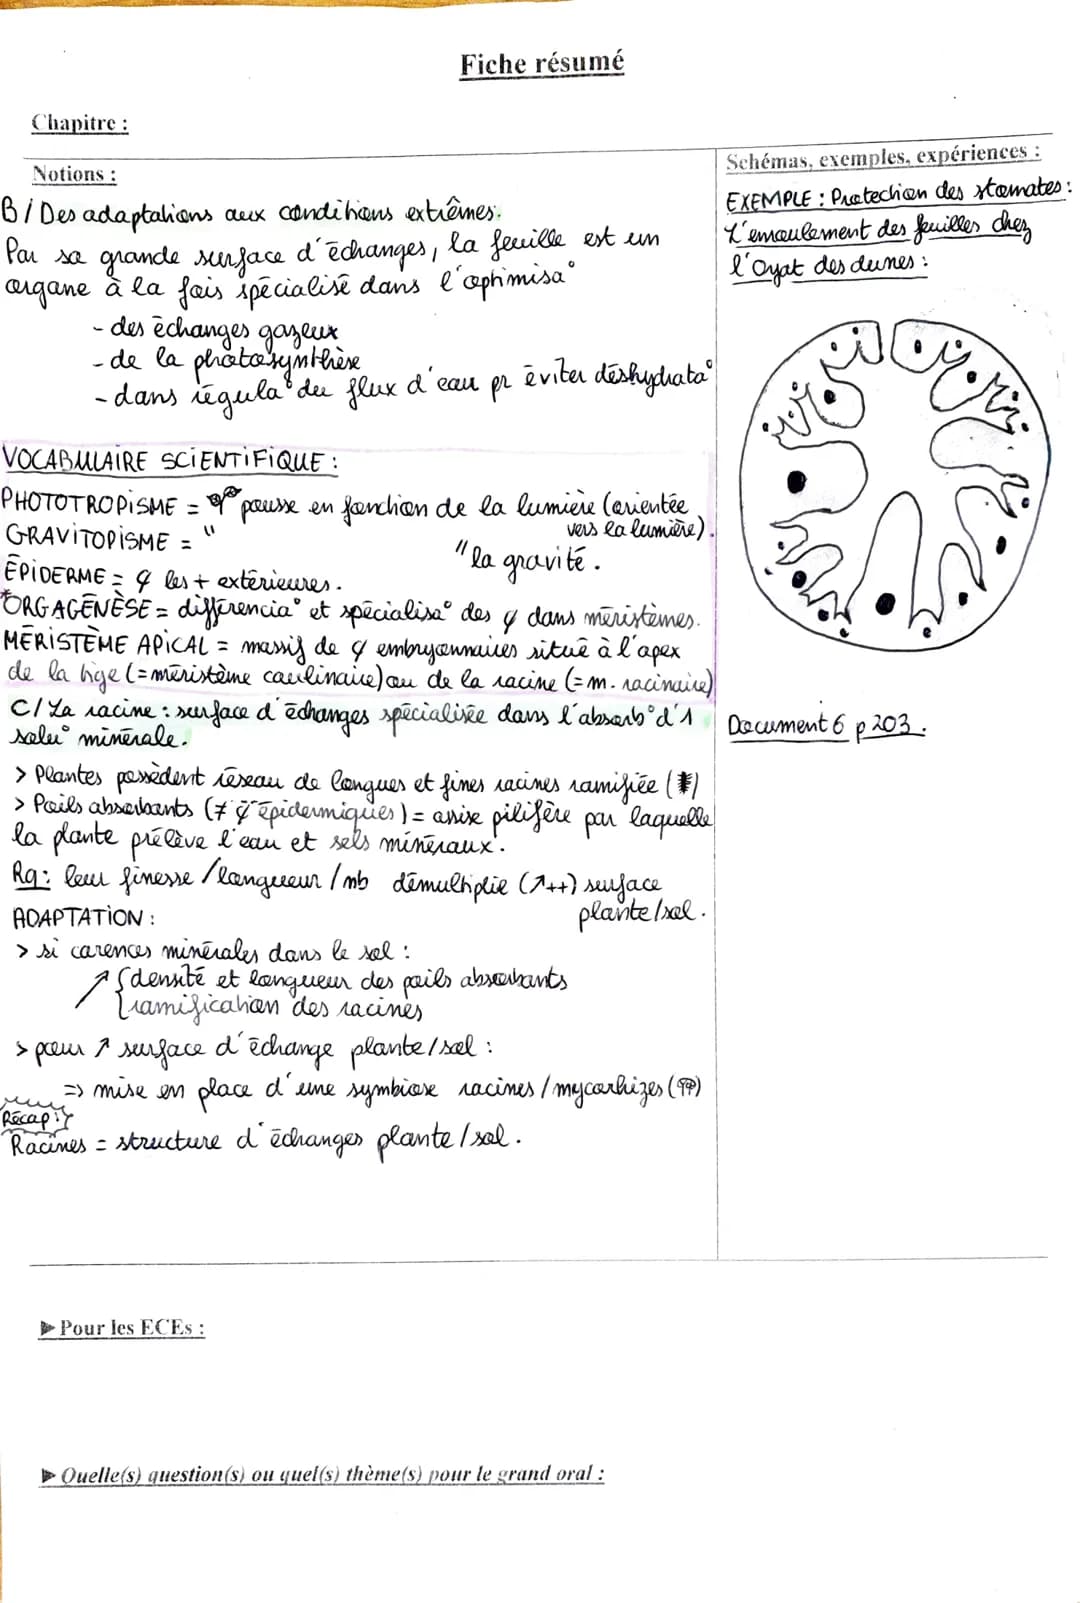 Fiche résumé
Chapitre :
Notions :
B/ Des adaptations aux conditions extrêmes.
Par sa grande surface d'échanges, la feuille est un
organe à la fois spécialisé dans l'optimisa°
- des échanges gazeux
- de la photosynthèse
- dans régula° du flux d'eau pr éviter déshydrata°
VOCABULAIRE SCIENTIFIQUE :
PHOTOTROPISME = pousse en fonction de la lumière (orientée
vers la lumière).
GRAVITOPISME = " " la gravité.
ÉPIDERME = les + extérieures.
*ORGAGÉNÈSE = différencia° et spécialisa° des dans méristèmes.
MÉRISTÈME APICAL = massif de embryonnaires situé à l'apex
de la tige (= méristème caulinaire) ou de la racine (= m. racinaire)
C/ La racine : surface d'échanges spécialisée dans l'absorb° d'1
solu° minérale.
> Plantes possèdent réseau de longues et fines racines ramifiée ( )
> Poils absorbants (≠ épidermiques) = assise pilifère par laquelle
la plante prélève l'eau et sels minéraux.
Rq : leur finesse / longueur / nb démultiplie (↗++) surface
plante/sol.
ADAPTATION :
> si carences minérales dans le sol :
↗ { densité et longueur des poils absorbants
ramification des racines
> pour ↗ surface d'échange plante/sol :
=> mise en place d'une symbiose racines / mycorhizes ( )
Récap :
Racines = structure d'échanges plante / sol.
Schémas, exemples, expériences :
EXEMPLE : Protection des stomates :
L'enroulement des feuilles chez
l'Oyat des dunes :
Document 6 p 203.
► Pour les ECEs :
► Quelle(s) question(s) ou quel(s) thème(s) pour le grand oral :